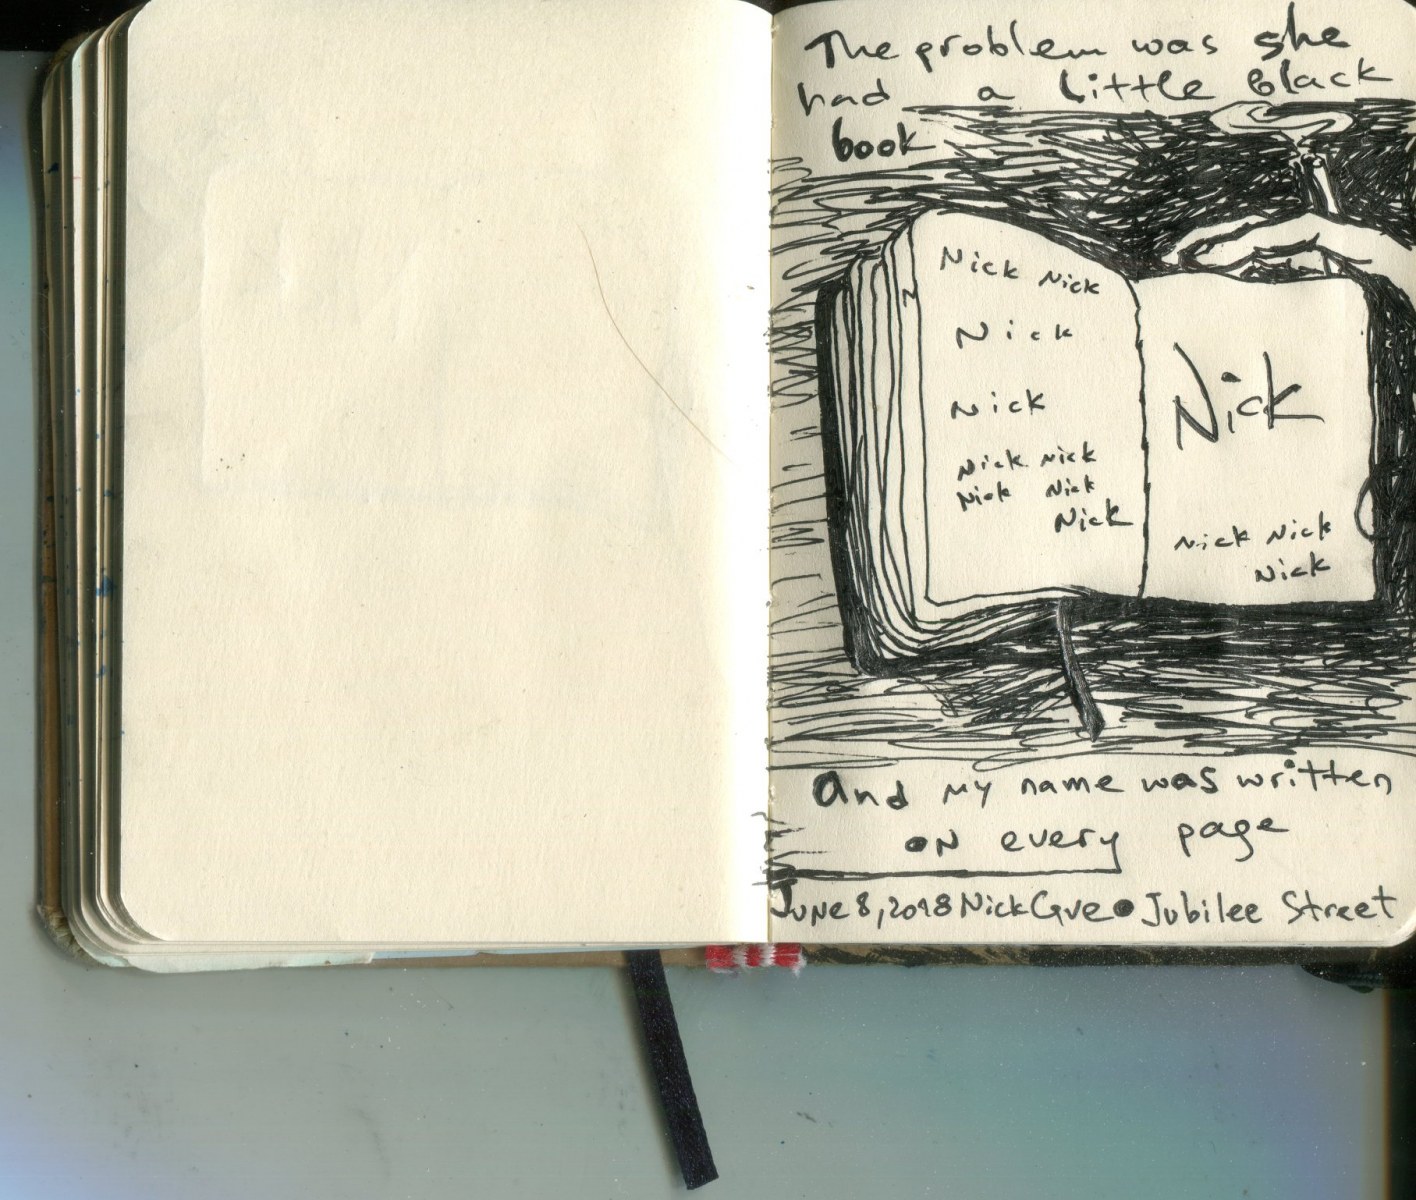 The problem was she
had a little black
book
Nick Nick
Nick
Nick
Nick Nick
Nick Nick
Nick
Nick
Nick Nick
Nick
and my name was written
on every page
June 8, 2018 Nick Cave • Jubilee Street